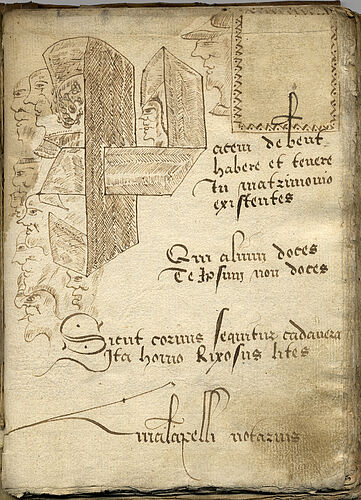 Pacem debent
habere et tenere
In matrimonio
existentes
Qui alium doces
Te Ipsum non doces
Sicut coruus sequitur cadauera
Ita homo Rixosus lites
notarius